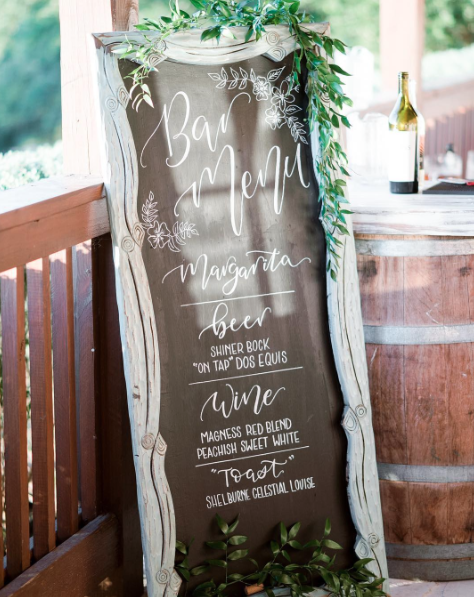 Bar
Menu
Margarita
beer
SHINER BOCK
"ON TAP" DOS EQUIS
Wine
MAGNESS RED BLEND
PEACHISH SWEET WHITE
"Toast"
SHELBURNE CELESTIAL LOUISE